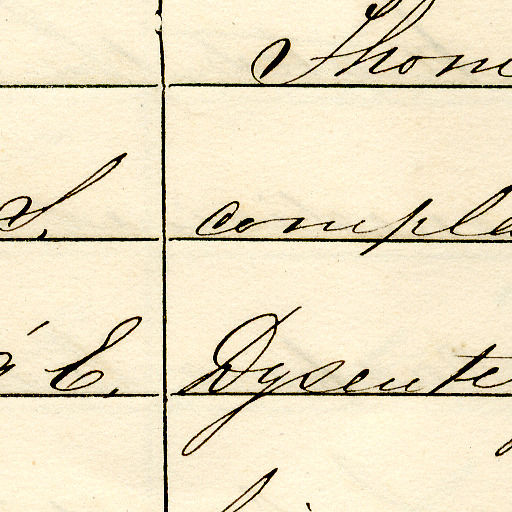 Thom
S. compla
E. Dysente